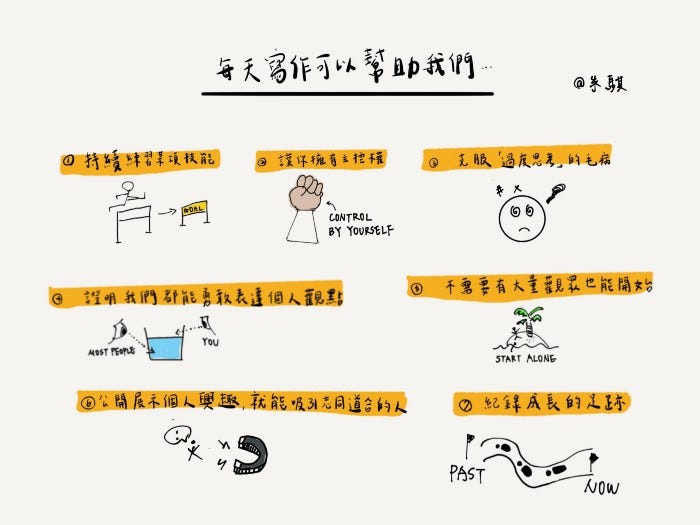 每天寫作可以幫助我們…
@朱騏
① 持續練習某項技能
GOAL
② 讓你擁有主控權
CONTROL
BY YOURSELF
③ 克服「過度思考」的毛病
④ 證明我們都能勇敢表達個人觀點
MOST PEOPLE
YOU
⑤ 不需要有大量觀眾也能開始
START ALONE
⑥ 公開展示個人興趣,就能吸引志同道合的人
⑦ 紀錄成長的足跡
PAST
NOW